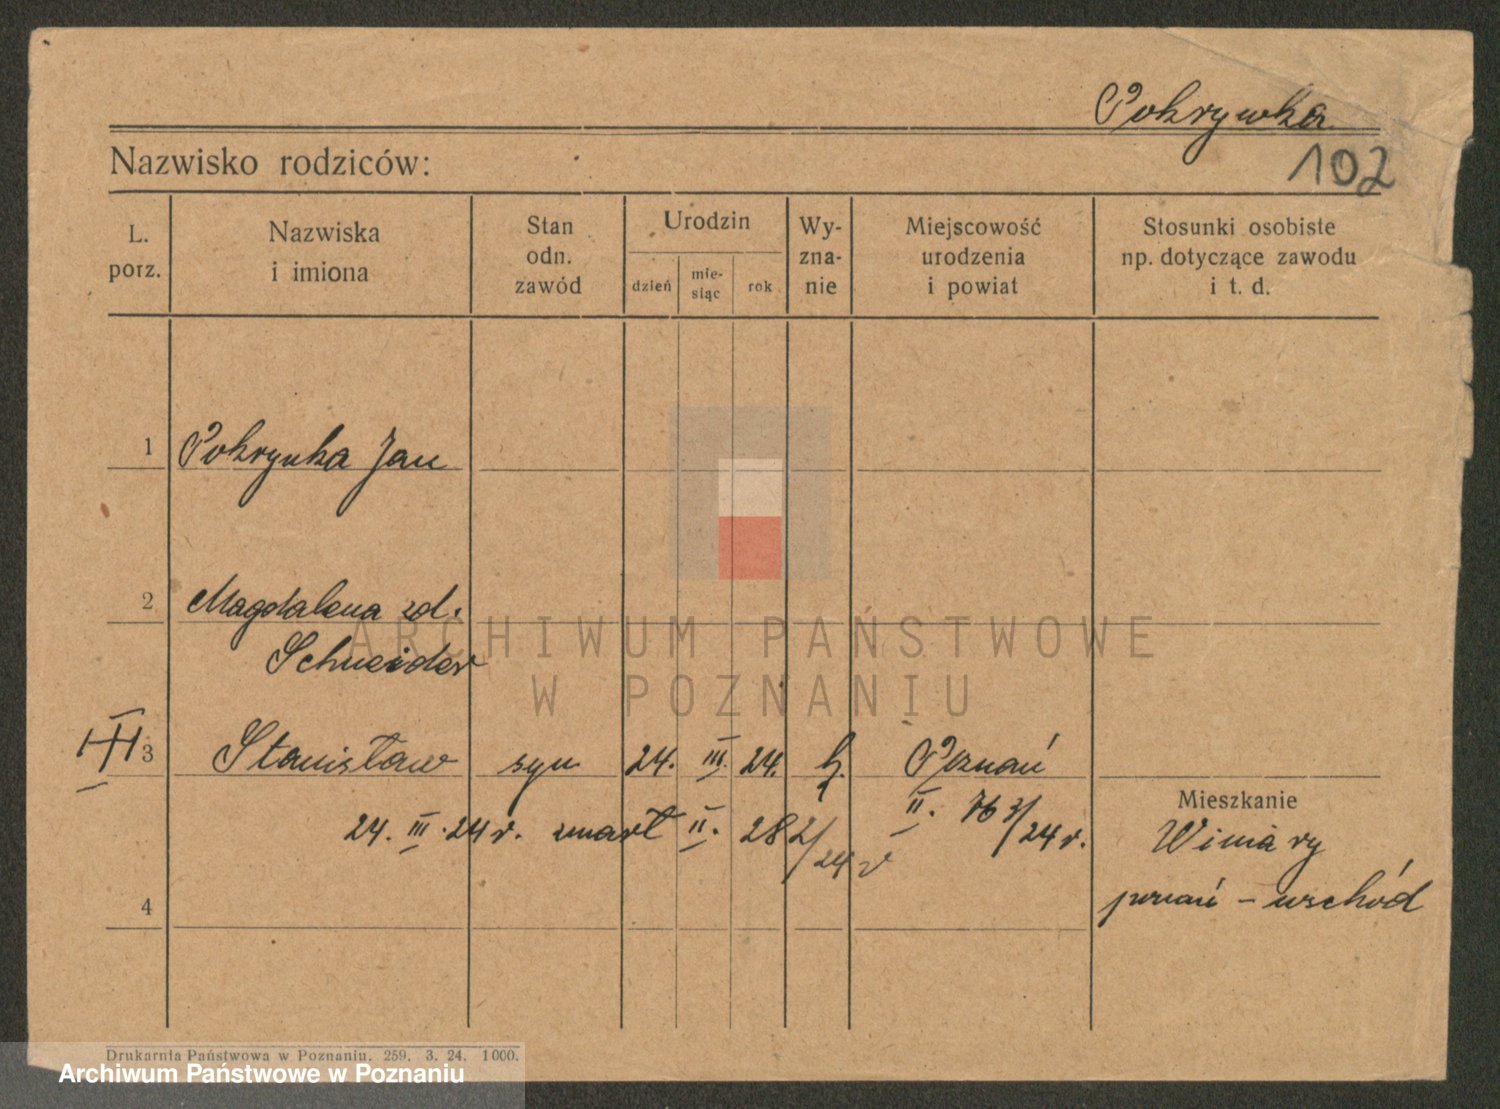 Pokrywka
Nazwisko rodziców:
102
L. porz.
Nazwiska i imiona
Stan odn. zawód
Urodzin
dzień
mie- siąc
rok
Wy- zna- nie
Miejscowość urodzenia i powiat
Stosunki osobiste np. dotyczące zawodu i t. d.
1 Pokrywka Jan
2 Magdalena zd.
Schneider
3 Stanisław syn 24. III. 24. Poznań
24. III. 24 r. zmarł II. 282/24 r
II. 763/24 r.
Mieszkanie
Winiary
poznań - wschód
4
ARCHIWUM PAŃSTWOWE
W POZNANIU
Drukarnia Państwowa w Poznaniu. 259. 3. 24. 1000.
Archiwum Państwowe w Poznaniu